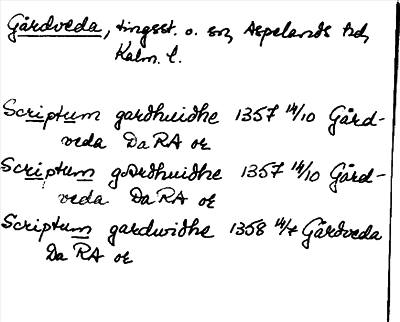 Gårdveda, tingsst. o. sn, Aspelands hd,
Kalm. l.
Scriptum gardhuidhe 1357 14/10 Gård-
veda Da RA or
Scriptum gardhuidhe 1357 14/10 Gård-
veda Da RA or
Scriptum gardwidhe 1358 14/7 Gårdveda
Da RA or